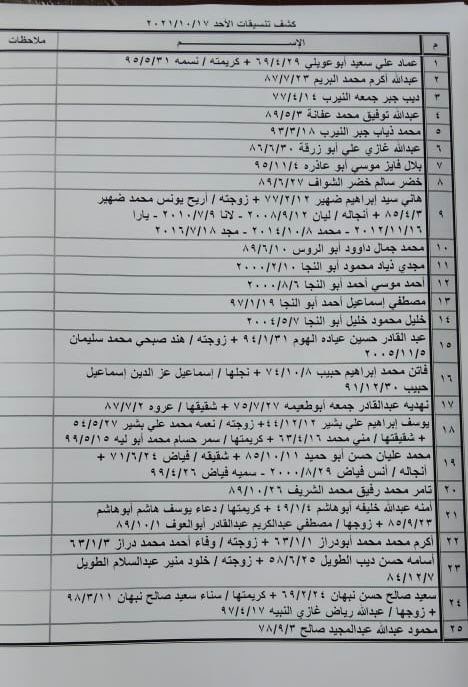 كشف تنسيقات الأحد ٢٠٢١/١٠/١٧
م الإســـــــم ملاحظات
١ عماد علي سعيد أبو عويلي ٦٩/٤/٢٩ + كريمته / نسمه ٩٥/٥/٣١
٢ عبدالله أكرم محمد البريم ٨٧/٧/٢٣
٣ ديب جبر جمعه النيرب ٧٧/٤/١٤
٤ عبدالله توفيق محمد عفانة ٨٩/٥/٣
٥ محمد ذياب جبر النيرب ٩٣/٣/١٨
٦ عبدالله غازي علي أبو زرقة ٨٦/٦/٣٠
٧ بلال فايز موسي أبو عاذره ٩٥/١١/٤
٨ خضر سالم خضر الشواف ٨٩/٦/٢٧
٩ هاني سيد إبراهيم ضهير ٧٧/٢/١٢ + زوجته / أريج يونس محمد ضهير
٨٥/٤/٣ + أنجاله / ليان ٢٠٠٨/٩/١٢ - لانا ٢٠١٠/٧/٩ - يارا
٢٠١٢/١١/١٦ - محمد ٢٠١٤/١٠/٨ - مجد ٢٠١٦/٧/١٨
١٠ محمد جمال داوود أبو الروس ٨٩/٦/١٠
١١ مجدي ذياد محمود أبو النجا ٢٠٠٠/٢/١٠
١٢ أحمد موسي أحمد أبو النجا ٢٠٠٠/٨/٦
١٣ مصطفي إسماعيل أحمد أبو النجا ٩٧/١/١٩
١٤ خليل محمود خليل أبو النجا ٢٠٠٤/٥/٧
١٥ عبد القادر حسين عياده الهوم ٩٤/١/٣١ + زوجته / هند صبحي محمد سليمان
٢٠٠٥/١١/٥
١٦ فاتن محمد إبراهيم حبيب ٧٤/١٠/٨ + نجلها / إسماعيل عز الدين إسماعيل
حبيب ٩١/١٢/٣٠
١٧ نهديه عبدالقادر جمعه أبوطعيمه ٧٥/٧/٢٧ + شقيقها / عروه ٨٧/٧/٢
١٨ يوسف إبراهيم علي بشير ٤٤/١٢/١٢+ زوجته / نعمه محمد علي بشير ٥٤/٥/٢٧
+ شقيقتها / مني محمد ٦٣/٤/١٦ + كريمتها / سمر حسام محمد أبو ليه ٩٩/٥/١٥
١٩ محمد عليان حسن أبو حميد ٨٥/١٠/١١ + شقيقه / فياض ٧١/٦/٢٤ +
أنجاله / أنس فياض ٢٠٠٠/٨/٢٩ - سميه فياض ٩٩/٤/٢٦
٢٠ تامر محمد رفيق محمد الشريف ٨٩/١٠/٢٦
٢١ أمنه عبدالله خليفه أبوهاشم ٤٩/١/٤ + كريمتها / دعاء يوسف هاشم أبوهاشم
٨٥/٩/٢٣ + زوجها / مصطفي عبدالكريم عبدالقادر أبوالعوف ٨٩/١٠/١
٢٢ أكرم محمد محمد أبودراز ٦٣/١/١ + زوجته / وفاء أحمد محمد دراز ٦٣/١/٣
٢٣ أسامه حسن ديب الطويل ٥٨/٦/٢٥ + زوجته / خلود منير عبدالسلام الطويل
٨٤/١٢/٧
٢٤ سعيد صالح حسن نبهان ٦٩/٢/٢٤ + كريمته / سناء سعيد صالح نبهان ٩٨/٣/١١
+ زوجها / عبدالله رياض غازي النبيه ٩٧/٤/١٧
٢٥ محمود عبدالله عبدالمجيد صالح ٧٨/٩/٣